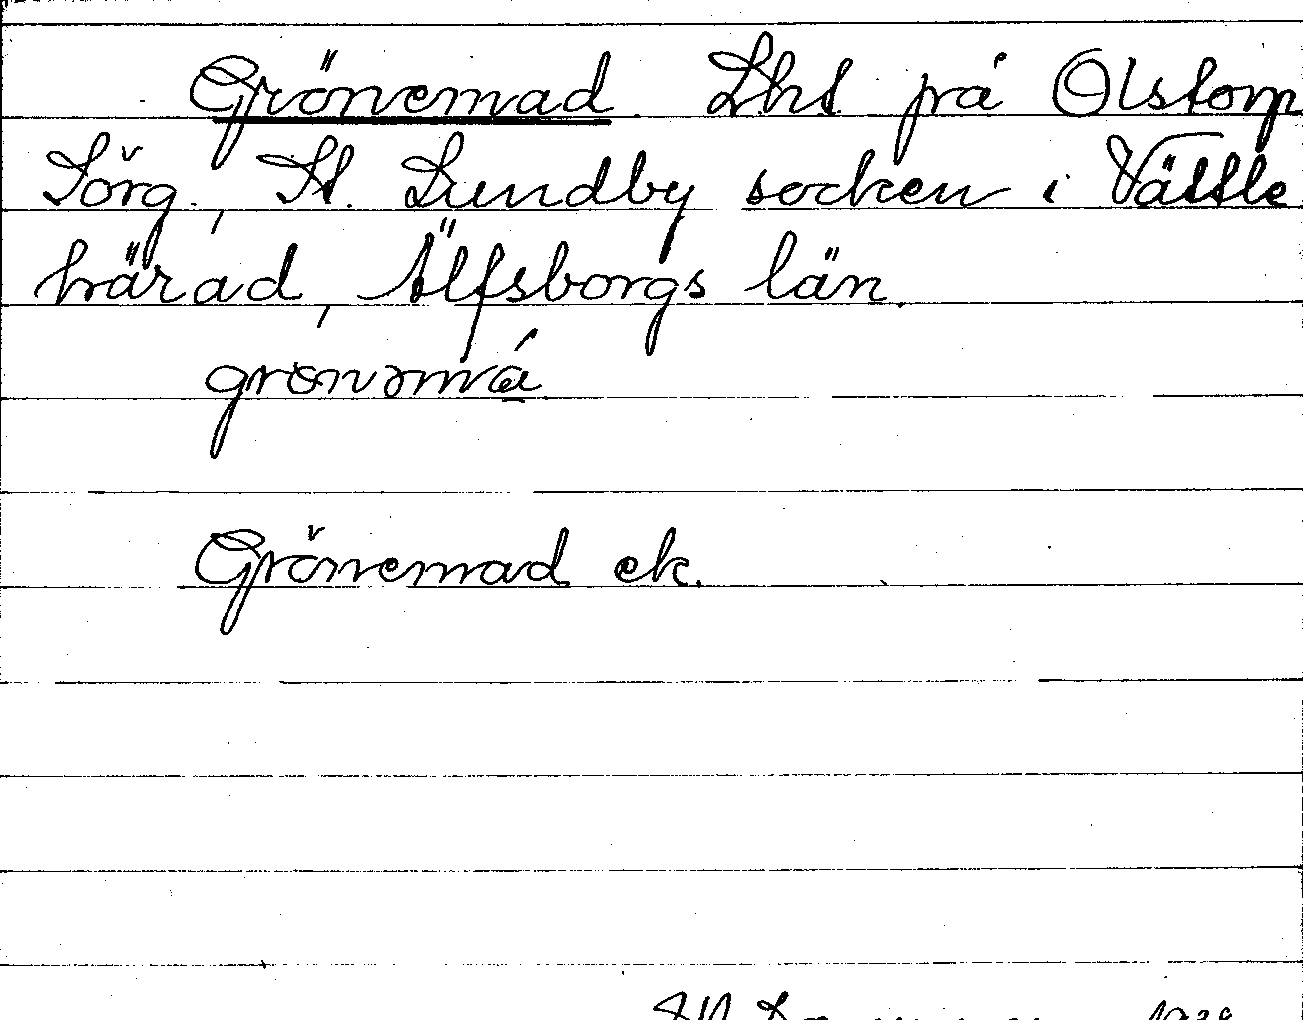 Grönemad Lht på Olstorp
Sörg., St. Lundby socken i Vättle
härad, Älfsborgs län.
Grönemad ek.